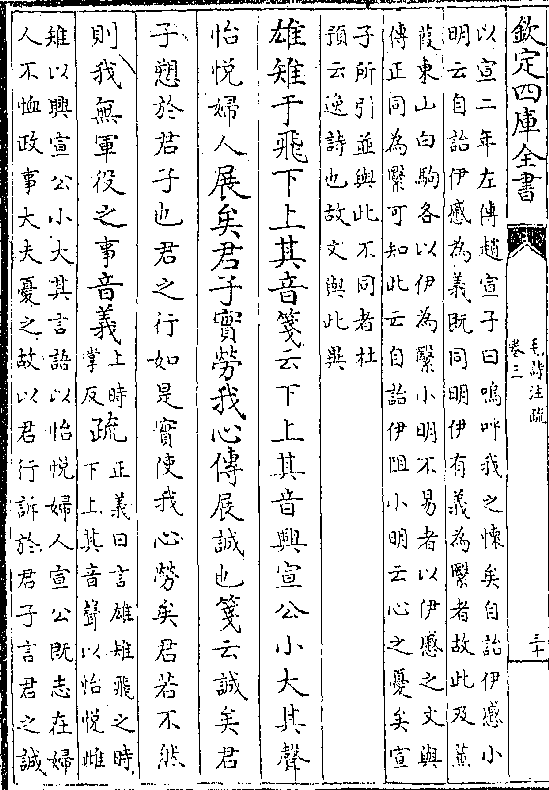 欽定四庫全書
毛詩注疏
卷三
三十
以宣二年左傳趙宣子曰嗚呼我之懷矣自詒伊慼小
明云自詒伊慼為義既同明伊有義為繄者故此及蒹
葭東山白駒各以伊為繄小明不易者以伊慼之文與
傳正同為繄可知此云自詒伊阻小明云心之憂矣宣
子所引並與此不同者杜
預云逸詩也故文與此異
雄雉于飛下上其音箋云下上其音興宣公小大其聲
怡悦婦人展矣君子實勞我心傳展誠也箋云誠矣君
子愬於君子也君之行如是實使我心勞矣君若不然
則我無軍役之事音義上時
掌反疏正義曰言雄雉飛之時
下上其音聲以怡悦雌
雉以興宣公小大其言語以怡悦婦人宣公既志在婦
人不恤政事大夫憂之故以君行訴於君子言君之誠